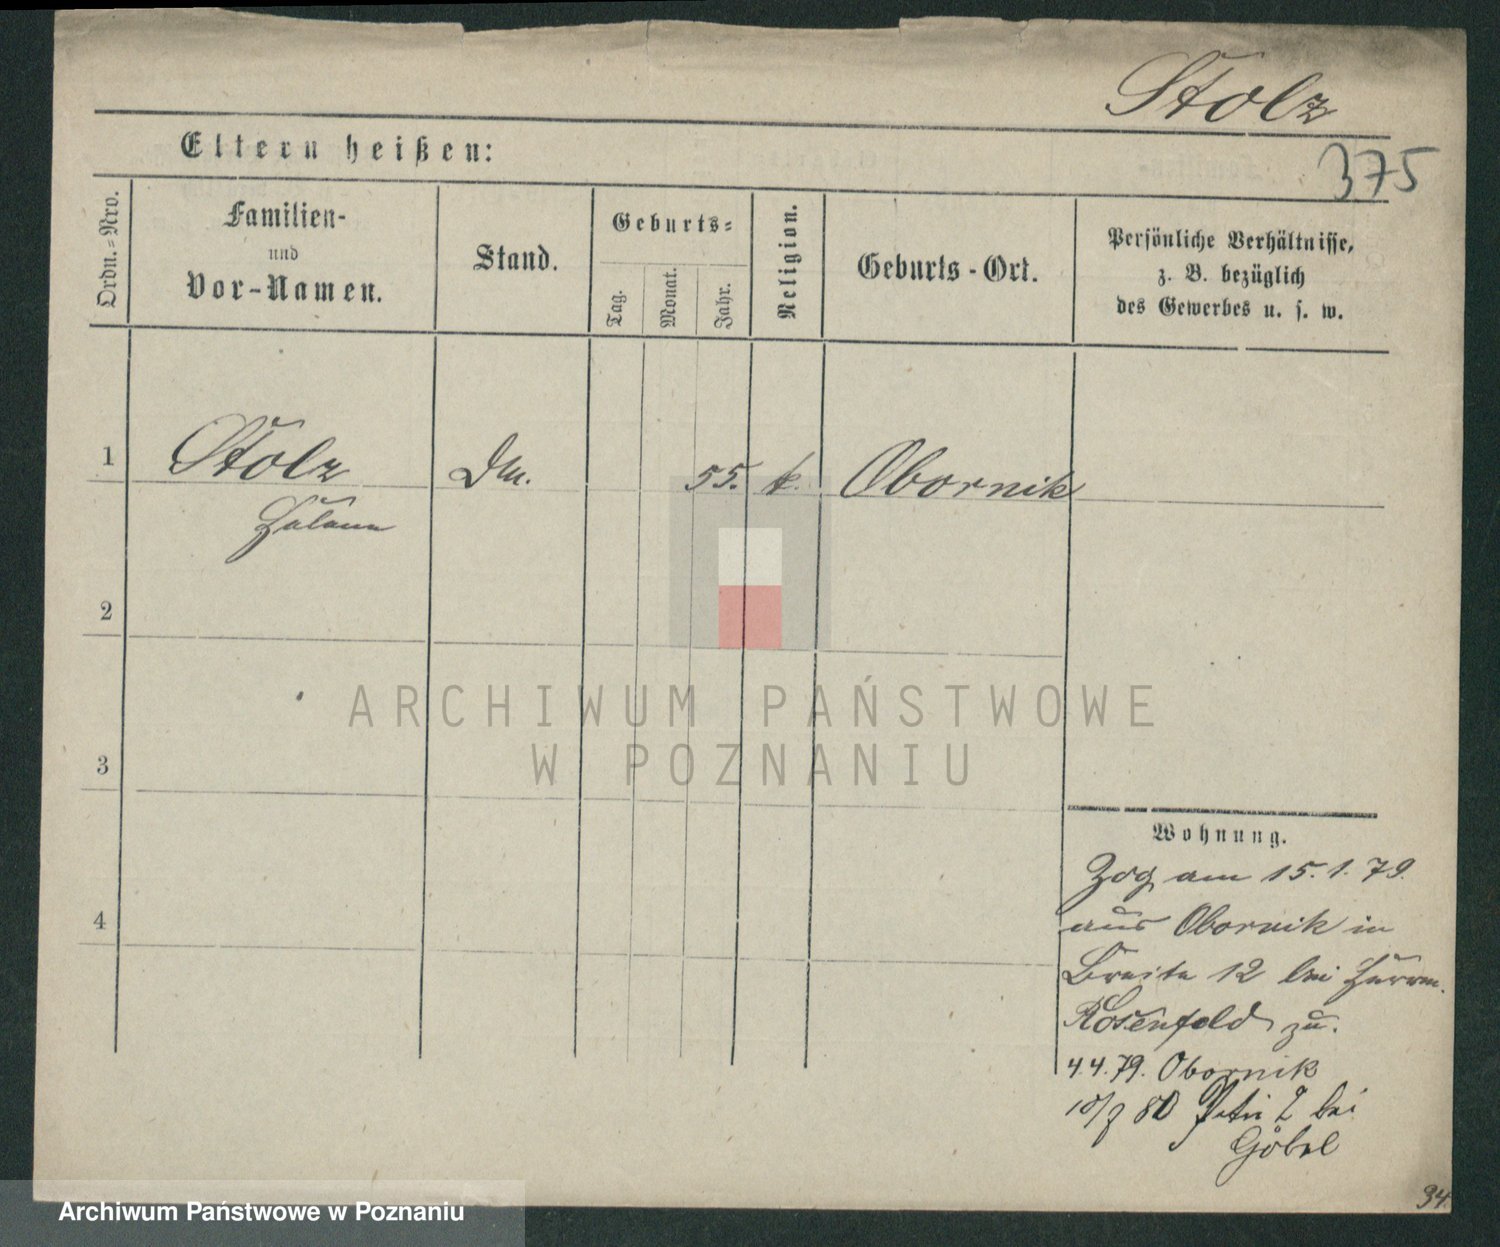 Stolz
375
Eltern heißen:
Ordn.=Nro.
Familien-
und
Vor-Namen.
Stand.
Geburts=
Tag.
Monat.
Jahr.
Religion.
Geburts-Ort.
Persönliche Verhältnisse,
z. B. bezüglich
des Gewerbes u. s. w.
1
Stolz
Dm.
55.
k.
Obornik
2
3
4
ARCHIWUM PAŃSTWOWE
W POZNANIU
Wohnung.
Zog am 15.1.79.
aus Obornik in
Breite 12 bei Herrn
Rosenfeld zu.
4.4.79. Obornik
80 Petri 2 bei
Göbel
34
Archiwum Państwowe w Poznaniu